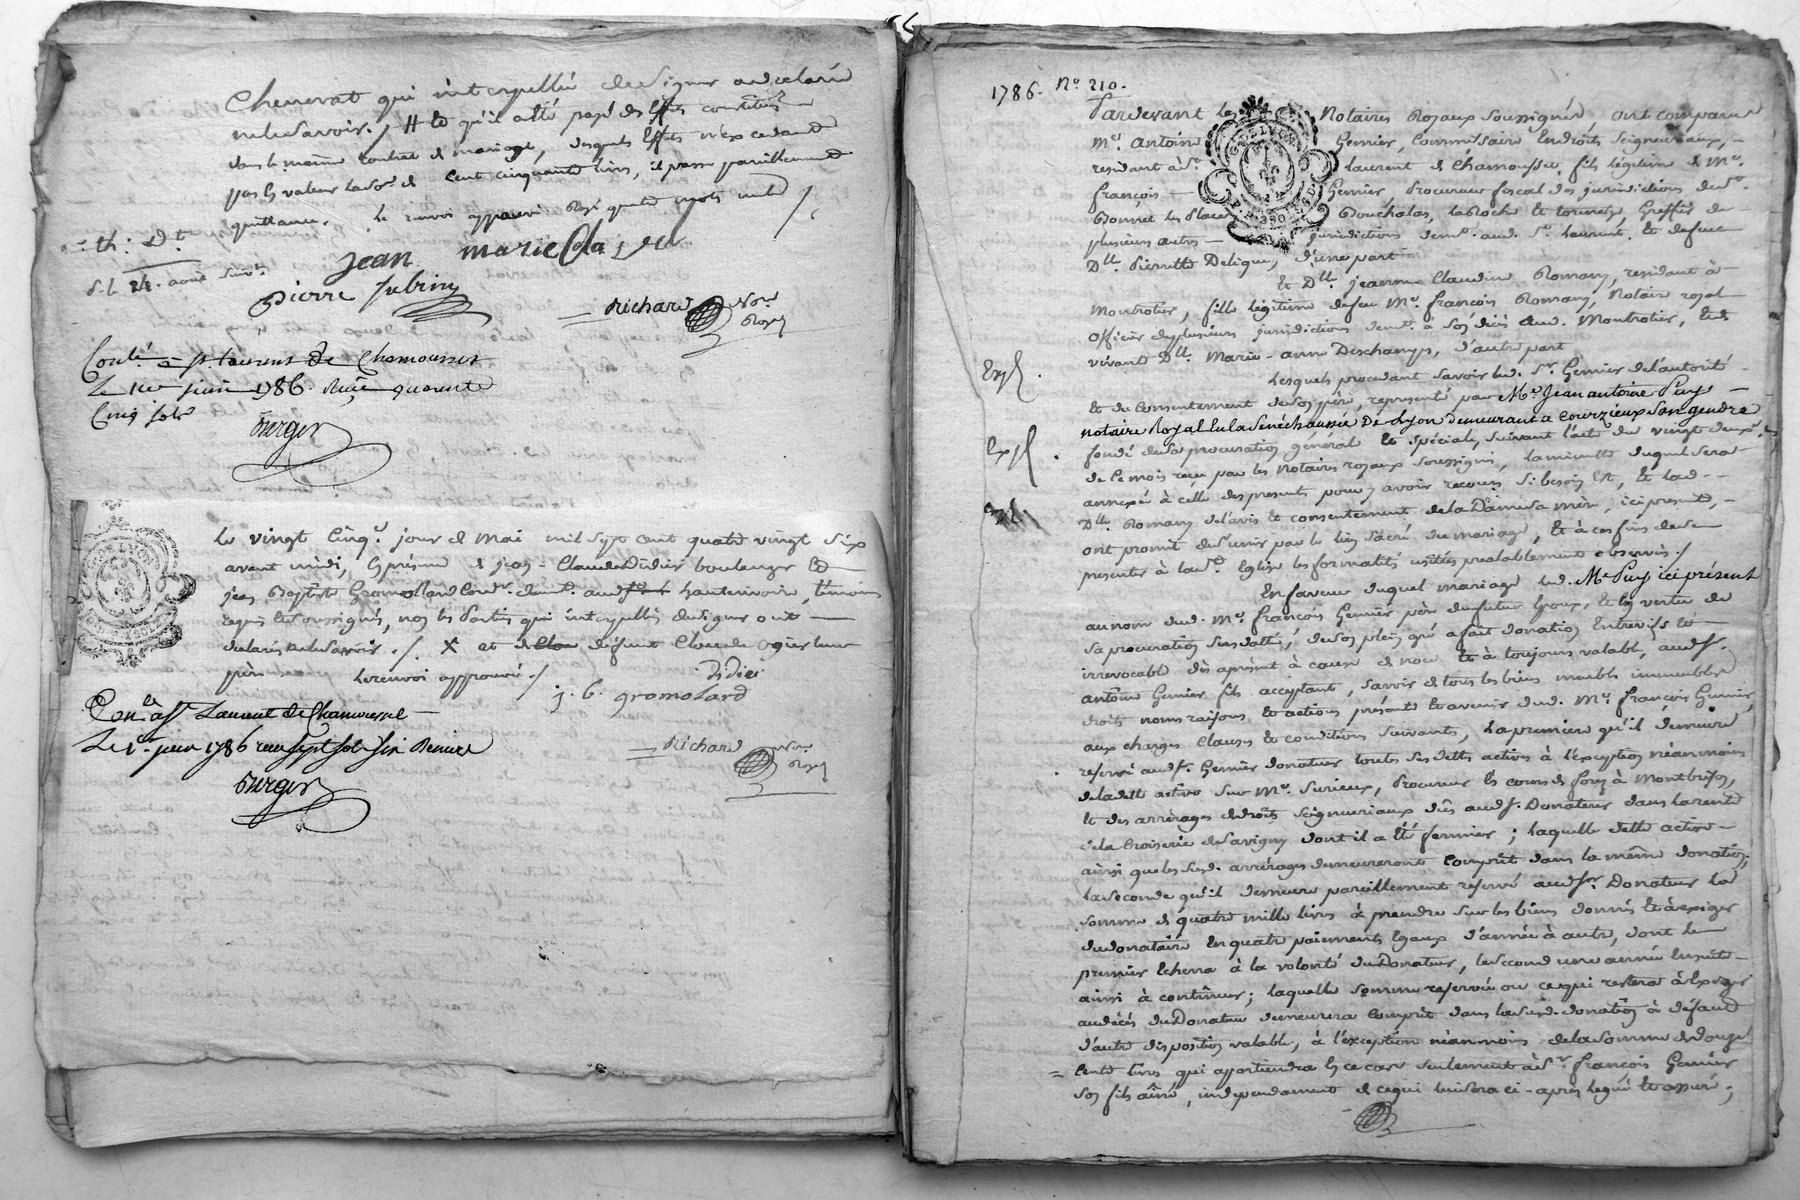 Chenevat qui interpellé de signer a declaré
ne le savoir. / # et qu'il a été payé des effets constitués
dans le même contrat de mariage, desquels effets n'excedant
pas la valeur de cent cinquante livres, il passe pareillement
quittance. le renvoi approuvé Rayé quatre mots nuls /.
jean marie Cola
pierre subrin
Richard Nore Royal
Conlé a st laurent De Chamousset
Le 1er juin 1786. Reçu quarante
Cinq sols
Berger
Le vingt cinq.e jour de Mai mil sept cent quatre vingt six
avant midi, En présence de jean-Claude Didier boulanger et
jean Baptiste Gromollard demt. hauterivoire, témoins
requis et soussignés, non les Parties qui interpellées de signer ont
declaré ne le savoir. /. X et de defunt Claude ogier leur
père le renvoi approuvé. /
Didier
j. b. gromolard
Richard Nore Royal
Con.lé a st Laurent de Chamousset
Le 1er juin 1786 reçu sept sols six Deniers
Berger
1786. No. 210.
Pardevant les Notaires Royaux soussignés ont comparu
Me. Antoine Gernier, Commissaire En droits seigneuriaux,
residant à St. Laurent de Chamousset, fils légitime de Me.
françois Gernier, Procureur fiscal des jurisdictions dud.
Bonnet les Places, Pouchalas, la Roche et Greffier de
plusieurs autres jurisdictions demt. aud. St. Laurent, et defeue
Dlle. Pierrette Deligue, d'une part
et Dlle. jeanne Claudine Romany, residant à
Montrotier, fille légitime de feu Me. françois Romany, Notaire royal
officier de plusieurs jurisdictions demt. à son décès aud. Montrotier, et de
vivante Dlle. Marie-anne Deschamps, d'autre part
Expé.
Lesquels procedant savoir led. Sr. Gernier de l'autorité
et du consentement de son père, représenté par Me. Jean antoine Puy
notaire Royal En la sénéchaussée De Lyon Demeurant a Courzieux son gendre
Expé.
fondé de sa procuration générale et spéciale, suivant l'acte du vingt deux
de ce mois reçu par les Notaires royaux soussignés, la minute duquel sera
annexée à celle des presentes pour y avoir recours si besoin Est, et lad.
Dlle. Romany de l'avis et consentement de la Dame sa mère, ici présente,
ont promit de s'unir par le lien sacré du mariage, et à ces fins de se
presenter à Eglise les formalités usitées préalablement observées. /
En faveur duquel mariage led. Me. Puy ici présent
au nom dud. Me. françois Gernier père du futur Epoux, et En vertu de
sa procuration susdatée, de son plein gré a fait donation Entrevifs et
irrevocable dès àprésent à cause de noce et à toujours valable, aud. Sr.
antoine Gernier fils acceptant, savoir de tous les biens meubles immeubles
droits noms raisons et actions présents et avenir dud. Me. françois Gernier,
aux charges Clauses et conditions suivantes, La premiere qu'il demeure
reservé aud. Sr. Gernier donateur toutes ses dettes actives à l'exception néanmoins
de la dette active sur Me. Surieux, Procureur Es cours de forez à Montbrison,
et des arrérages de droits seigneuriaux dûs aud. Sr. Donateur dans la rente
de la Choiserie de Savigny dont il a été fermier; laquelle dette active
ainsi que les susd. arrérages demeureront compris dans la même donation;
La seconde qu'il demeure pareillement réservé aud. Sr. Donateur la
somme de quatre mille livres à prendre sur les biens donnés et à exiger
du donataire En quatre paiements Egaux d'année à autre, dont le
premier Echerra à la volonté du Donateur, le second une année Ensuite
ainsi à continuer; laquelle somme reservée ou ce qui restera à Exiger
au décès du Donateur demeurera compris dans la susd. donation à défaut
d'autre disposition valable, à l'exception néanmoins de la somme de douze
cents livres qui appartiendra En ce cas seulement à Sr. françois Gernier
son fils âiné, indépendamment de ce qui lui sera ci-après legué et assuré;